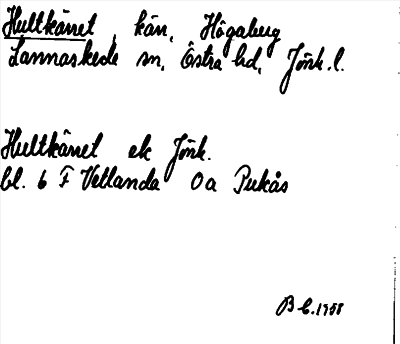 Hultkärret, kärr, Högaberg
Lannaskede sn, Östra hd, Jönk. l.
Hultkärret ek Jönk.
bl. 6 F Vetlanda 0a Pukås
B 6.1958